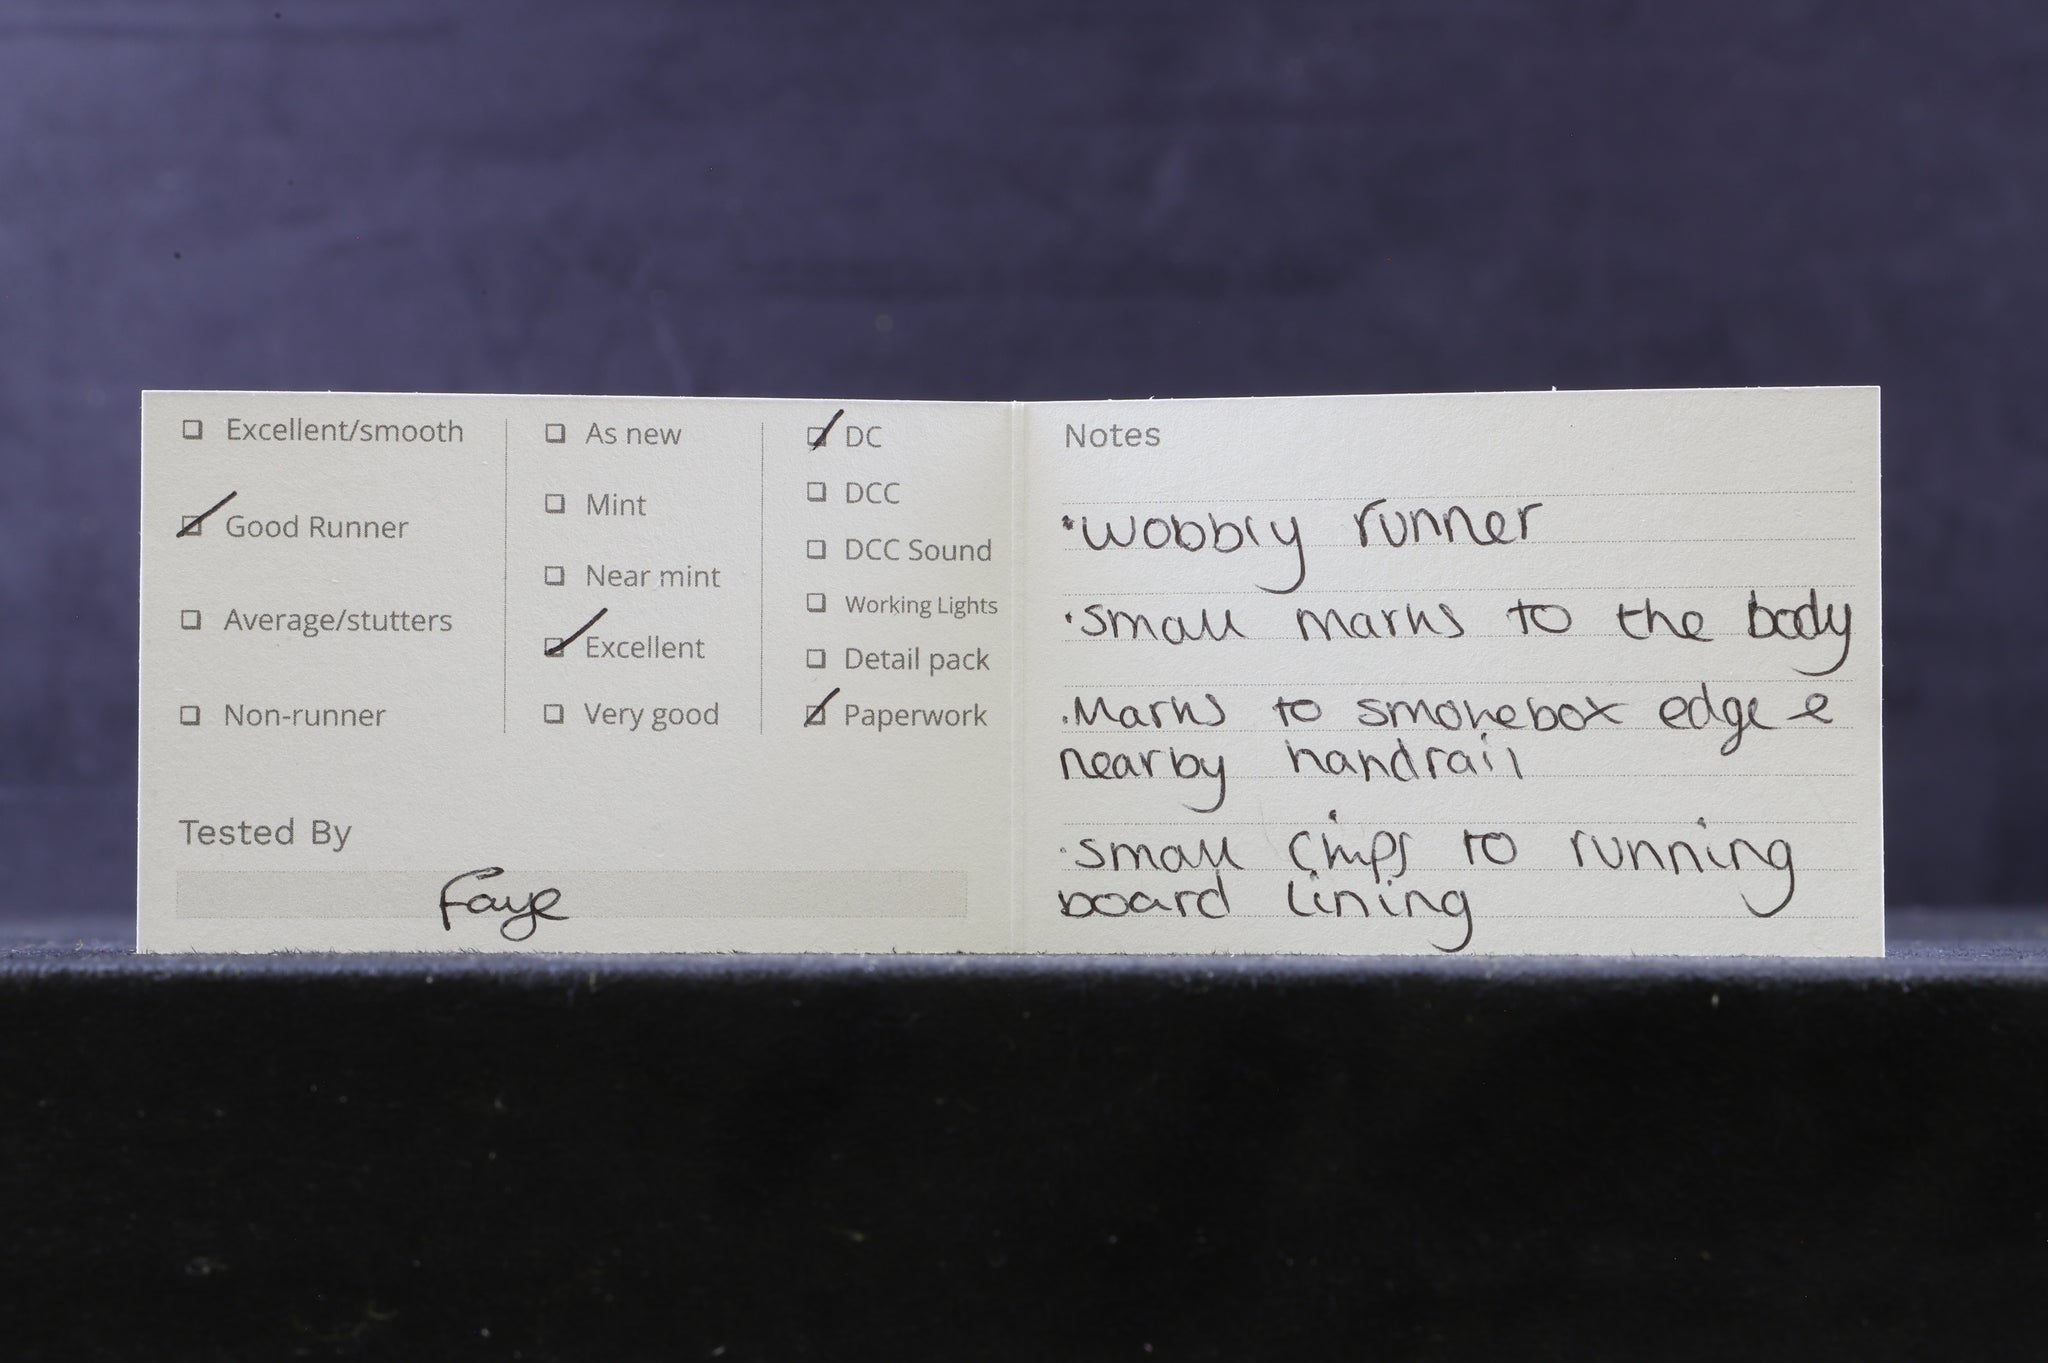 Excellent/smooth
Good Runner
Average/stutters
Non-runner
As new
Mint
Near mint
Excellent
Very good
DC
DCC
DCC Sound
Working Lights
Detail pack
Paperwork
Tested By
Faye
Notes
·wobbly runner
·small marks to the body
·Marks to smokebox edge &
nearby handrail
·small chips to running
board lining